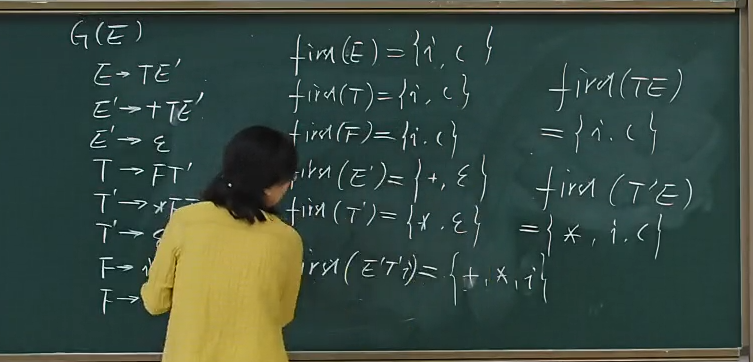 G(E)
E→TE'
E'→+TE'
E'→ε
T→FT'
T'→*F
T'→
F→
F→
first(E)={i,(}
first(T)={i,(}
first(F)={i.(}
first(E')={+,ε}
first(T')={*.ε}
first(E'T'i)={+,*,i}
first(TE)
={i.(}
first(T'E)
={*,i.(}